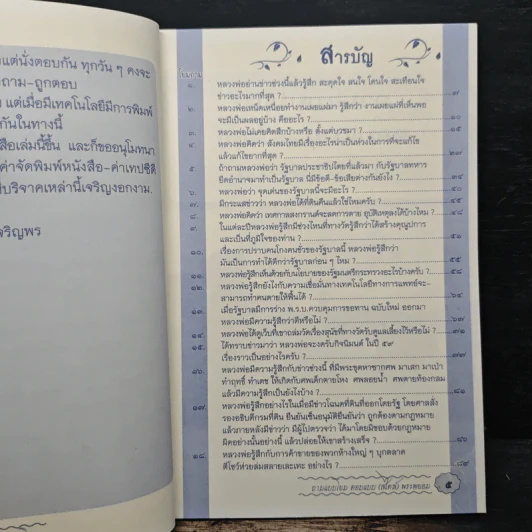 งแต่นั่งตอบกัน ทุกวัน ๆ คงจะ
ถาม-ถูกตอบ
แต่เมื่อมีเทคโนโลยีมีการพิมพ์
กันในทางนี้
สือเล่มนี้ขึ้น และก็ขออนุโมทนา
ค่าจัดพิมพ์หนังสือ-ค่าเทปซีดี
บริจาคเหล่านี้เจริญงอกงาม.
จริญพร
สารบัญ
๑. หลวงพ่ออ่านข่าวช่วงนี้แล้วรู้สึก สะดุดใจ สนใจ โดนใจ สะเทือนใจ
ข่าวอะไรมากที่สุด ?
หลวงพ่อเหน็ดเหนื่อยทำงานเผยแผ่มา รู้สึกว่า งานเผยแผ่ที่เห็นพอ
จะมีเป็นผลอยู่บ้าง คืออะไร ?
๓. หลวงพ่อไม่เคยคิดสึกบ้างหรือ ตั้งแต่บวชมา ?
๔. หลวงพ่อคิดว่า สังคมไทยมีเรื่องอะไรน่าเป็นห่วงในการที่จะแก้ไข
แล้วแก้ไขยากที่สุด ?
๕. ถ้าถามหลวงพ่อว่า รัฐบาลประชาธิปไตยที่แล้วมา กับรัฐบาลทหาร
ยึดอำนาจมาทำเป็นรัฐบาล นี่มีข้อดี-ข้อเสียต่างกันยังไง ?
๖. หลวงพ่อว่า จุดเด่นของรัฐบาลนี้จะมีอะไร ?
๗. มีกระแสข่าวว่า หลวงพ่อได้ที่ดินคืนแล้วใช่ไหมครับ ?
๘. หลวงพ่อคิดว่า เทศกาลสงกรานต์จะลดการตาย อุบัติเหตุลงได้บ้างไหม ?
๙. ในแต่ละปีหลวงพ่อมีช่วงไหนที่ทางวัดรู้สึกว่าได้สร้างคุณูปการ
และเป็นที่ภูมิใจของท่าน ?
๑๐. เรื่องการปราบคนโกงคนชั่วของรัฐบาลนี้ หลวงพ่อรู้สึกว่า
มันเป็นการทำได้ดีกว่ารัฐบาลก่อน ๆ ไหม ?
๑๑. หลวงพ่อรู้สึกเห็นด้วยกับนโยบายของรัฐมนตรีกระทรวงอะไรบ้างครับ ?
๑๒. หลวงพ่อรู้สึกยังไงกับความเชื่อมั่นทางเทคโนโลยีทางการแพทย์จะ-
สามารถทำคนตายให้ฟื้นได้ ?
เมื่อรัฐบาลมีการร่าง พ.ร.บ.ควบคุมการขอทาน ฉบับใหม่ ออกมา
หลวงพ่อมีความรู้สึกว่าดีหรือไม่ ?
หลวงพ่อได้ดูเว็บที่เขาถล่มวัดเรื่องสุนัขที่ทางวัดรับดูแลเลี้ยงไว้หรือไม่ ?
๑๕. ได้ทราบข่าวมาว่า หลวงพ่อจะงดรับกิจนิมนต์ ในปี ๕๙
เรื่องราวเป็นอย่างไรครับ ?
๑๖. หลวงพ่อมีความรู้สึกกับข่าวช่วงนี้ ที่มีพระขุดหาซากศพ มาเสก มาเป่า
ทำฤทธิ์ ทำเดช ให้เกิดกับศพเด็กตายโหง ศพลอยน้ำ ศพตายท้องกลม
แล้วมีความรู้สึกเป็นยังไงบ้าง ?
๑๗. หลวงพ่อรู้สึกอย่างไรในเมื่อมีข่าวโฉนดที่ดินที่ออกโดยรัฐ โดยศาลสั่ง
รองอธิบดีกรมที่ดิน ยืนยันเซ็นอนุมัติยืนยันว่า ถูกต้องตามกฎหมาย
แล้วภายหลังมีข่าวว่า มีผู้ไปตรวจว่า ได้มาโดยมิชอบด้วยกฎหมาย
ผิดอย่างนั้นอย่างนี้ แล้วปล่อยให้เขาสร้างเสร็จ ?
๑๘. หลวงพ่อรู้สึกกับการค้าขายของพวกห้างใหญ่ ๆ บุกตลาด
ตีโชว์ห่วยล่มสลายเละเทะ อย่างไร ?
๕